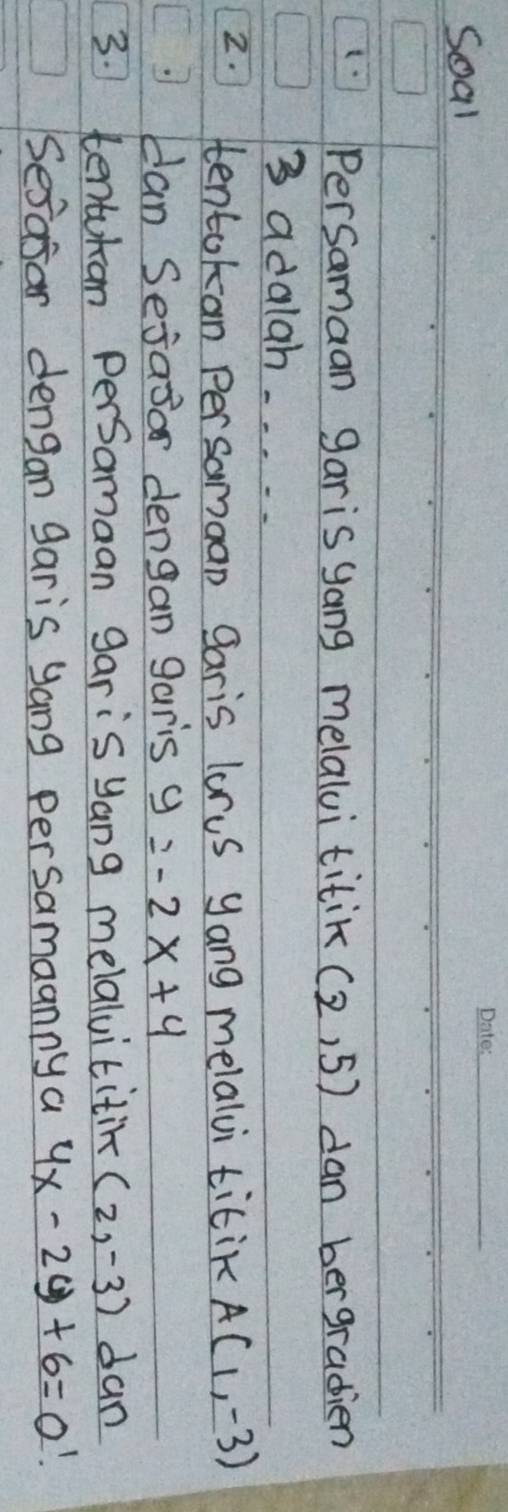 Soal
Date:
1. Persamaan garis yang melalui titik (2,5) dan bergradien
3 adalah.....
2. tentukan Persamaan garis lurus yang melalui titik A(1,-3)
dan Sejajar dengan garis y = -2x+4
3. tentukan Persamaan garis yang melalui titik (2,-3) dan
Sejajar dengan garis yang Persamaannya 4x - 2y + 6 = 0!